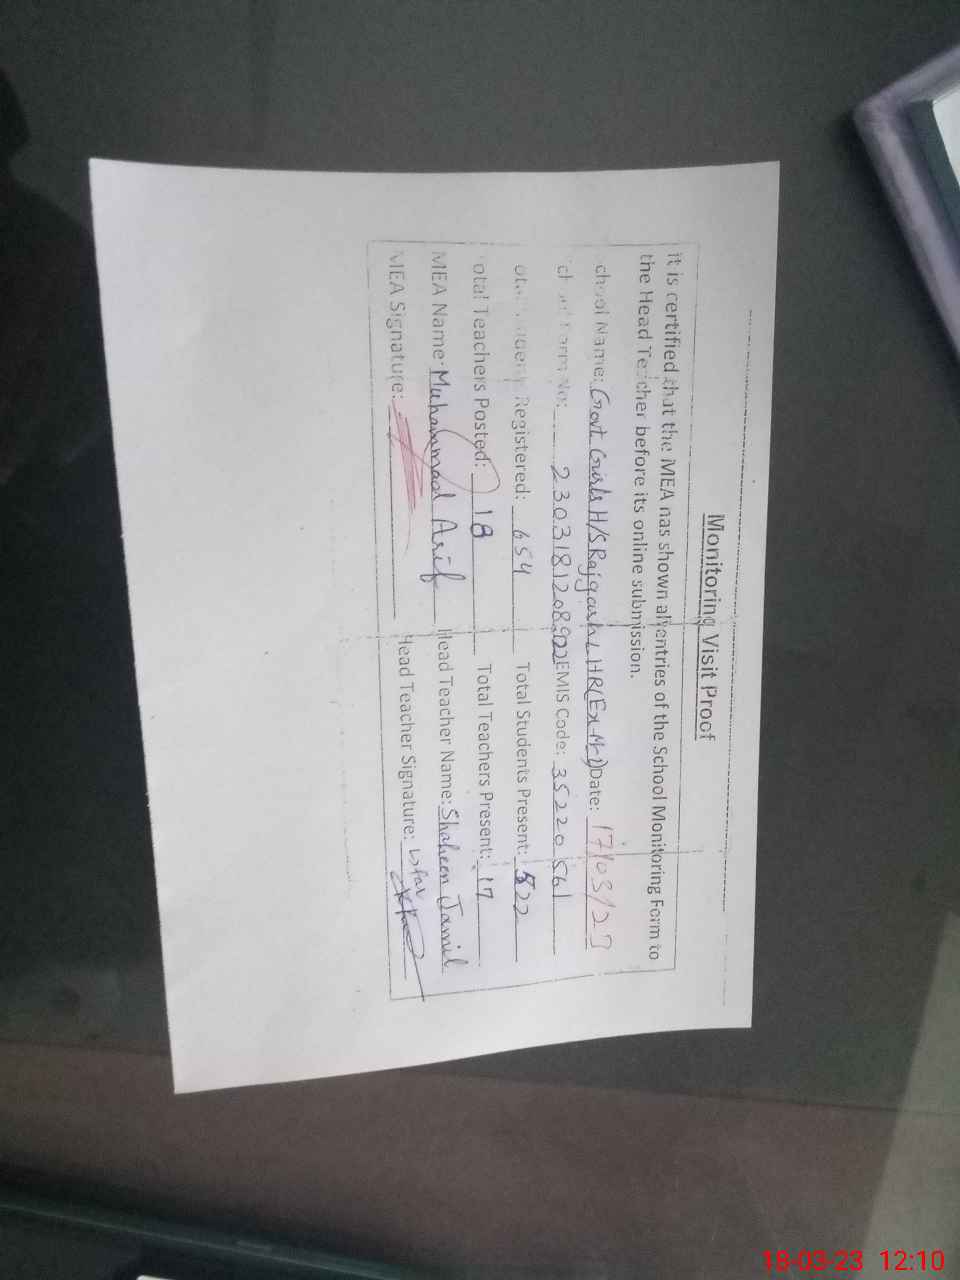 Monitoring Visit Proof
it is certified that the MEA has shown all entries of the School Monitoring Form to
the Head Teacher before its online submission.
chool Name: Govt Girls H/S Rajgarh LHR(Ex-M-1) Date: 17/03/23
No: 2303181208902 EMIS Code: 35220561
Registered: 654 Total Students Present: 522
otal Teachers Posted: 18 Total Teachers Present: 17
MEA Name: Muhammad Arif Head Teacher Name: Shaheen Jamil
MEA Signature: Head Teacher Signature:
18-03-23 12:10